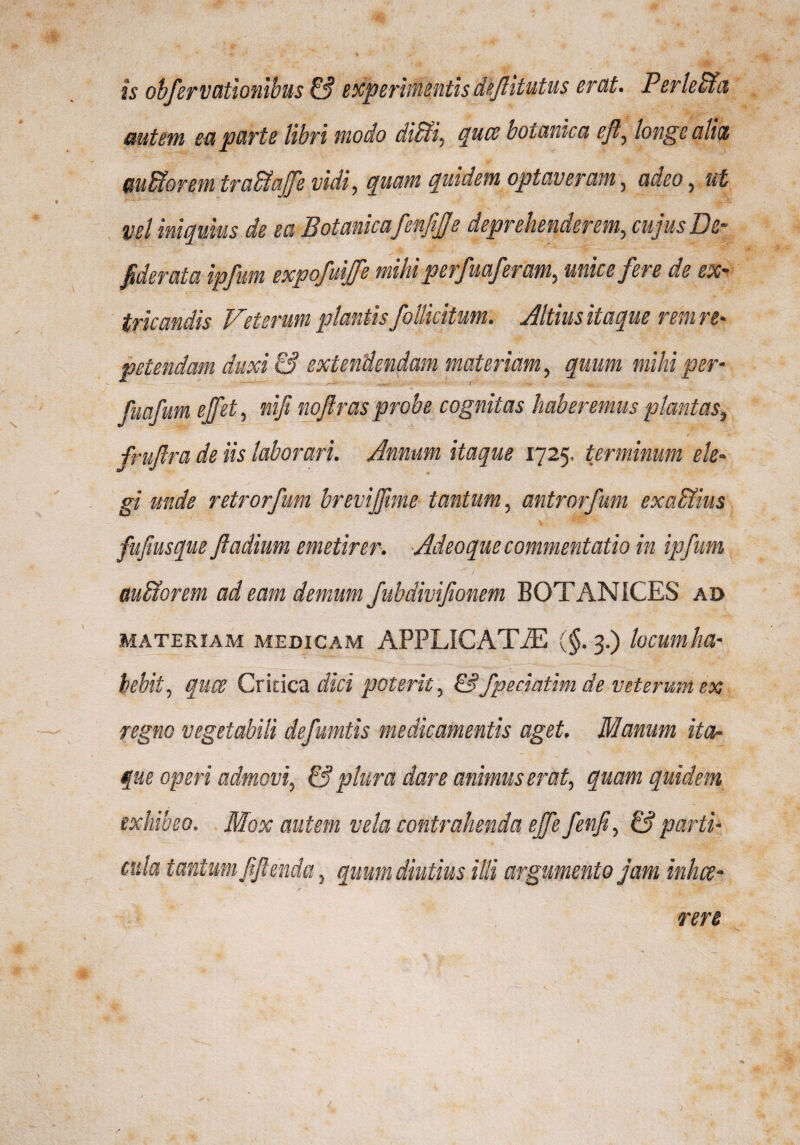 is obſervationibus & experimentis deſtitutus erat. Perlecta
autem ea parte libri modo dicti, quæ botanica eſt, longe alia
auctorem tractaſſe vidi, quam quidem optaveram, adeo, ut
vel iniquius de ea Botanica ſenſiſſe deprehenderem, cujus De-
ſiderata ipſum expoſuiſſe mihi perſuaſeram, unice fere de ex-
tricandis Veterum plantis ſollicitum. Altius itaque rem re-
petendam duxi & extendendam materiam, quum mihi per-
ſuaſum eſſet, niſi noſtras probe cognitas haberemus plantas,
fruſtra de iis laborari. Annum itaque 1725. terminum ele-
gi unde retrorſum breviſſime tantum, antrorſum exactius
fuſiusque ſtadium emetirer. Adeoque commentatio in ipſum
auctorem ad eam demum ſubdiviſionem BOTANICES AD
MATERIAM MEDICAM APPLICATÆ (§. 3.) locum ha-
bebit, quæ Critica dici poterit, & ſpeciatim de veterum ex
regno vegetabili deſumtis medicamentis aget. Manum ita-
que operi admovi, & plura dare animus erat, quam quidem
exhibeo. Mox autem vela contrahenda eſſe ſenſi, & parti-
cula tantum ſiſtenda, quum diutius illi argumento jam inhæ-
rere